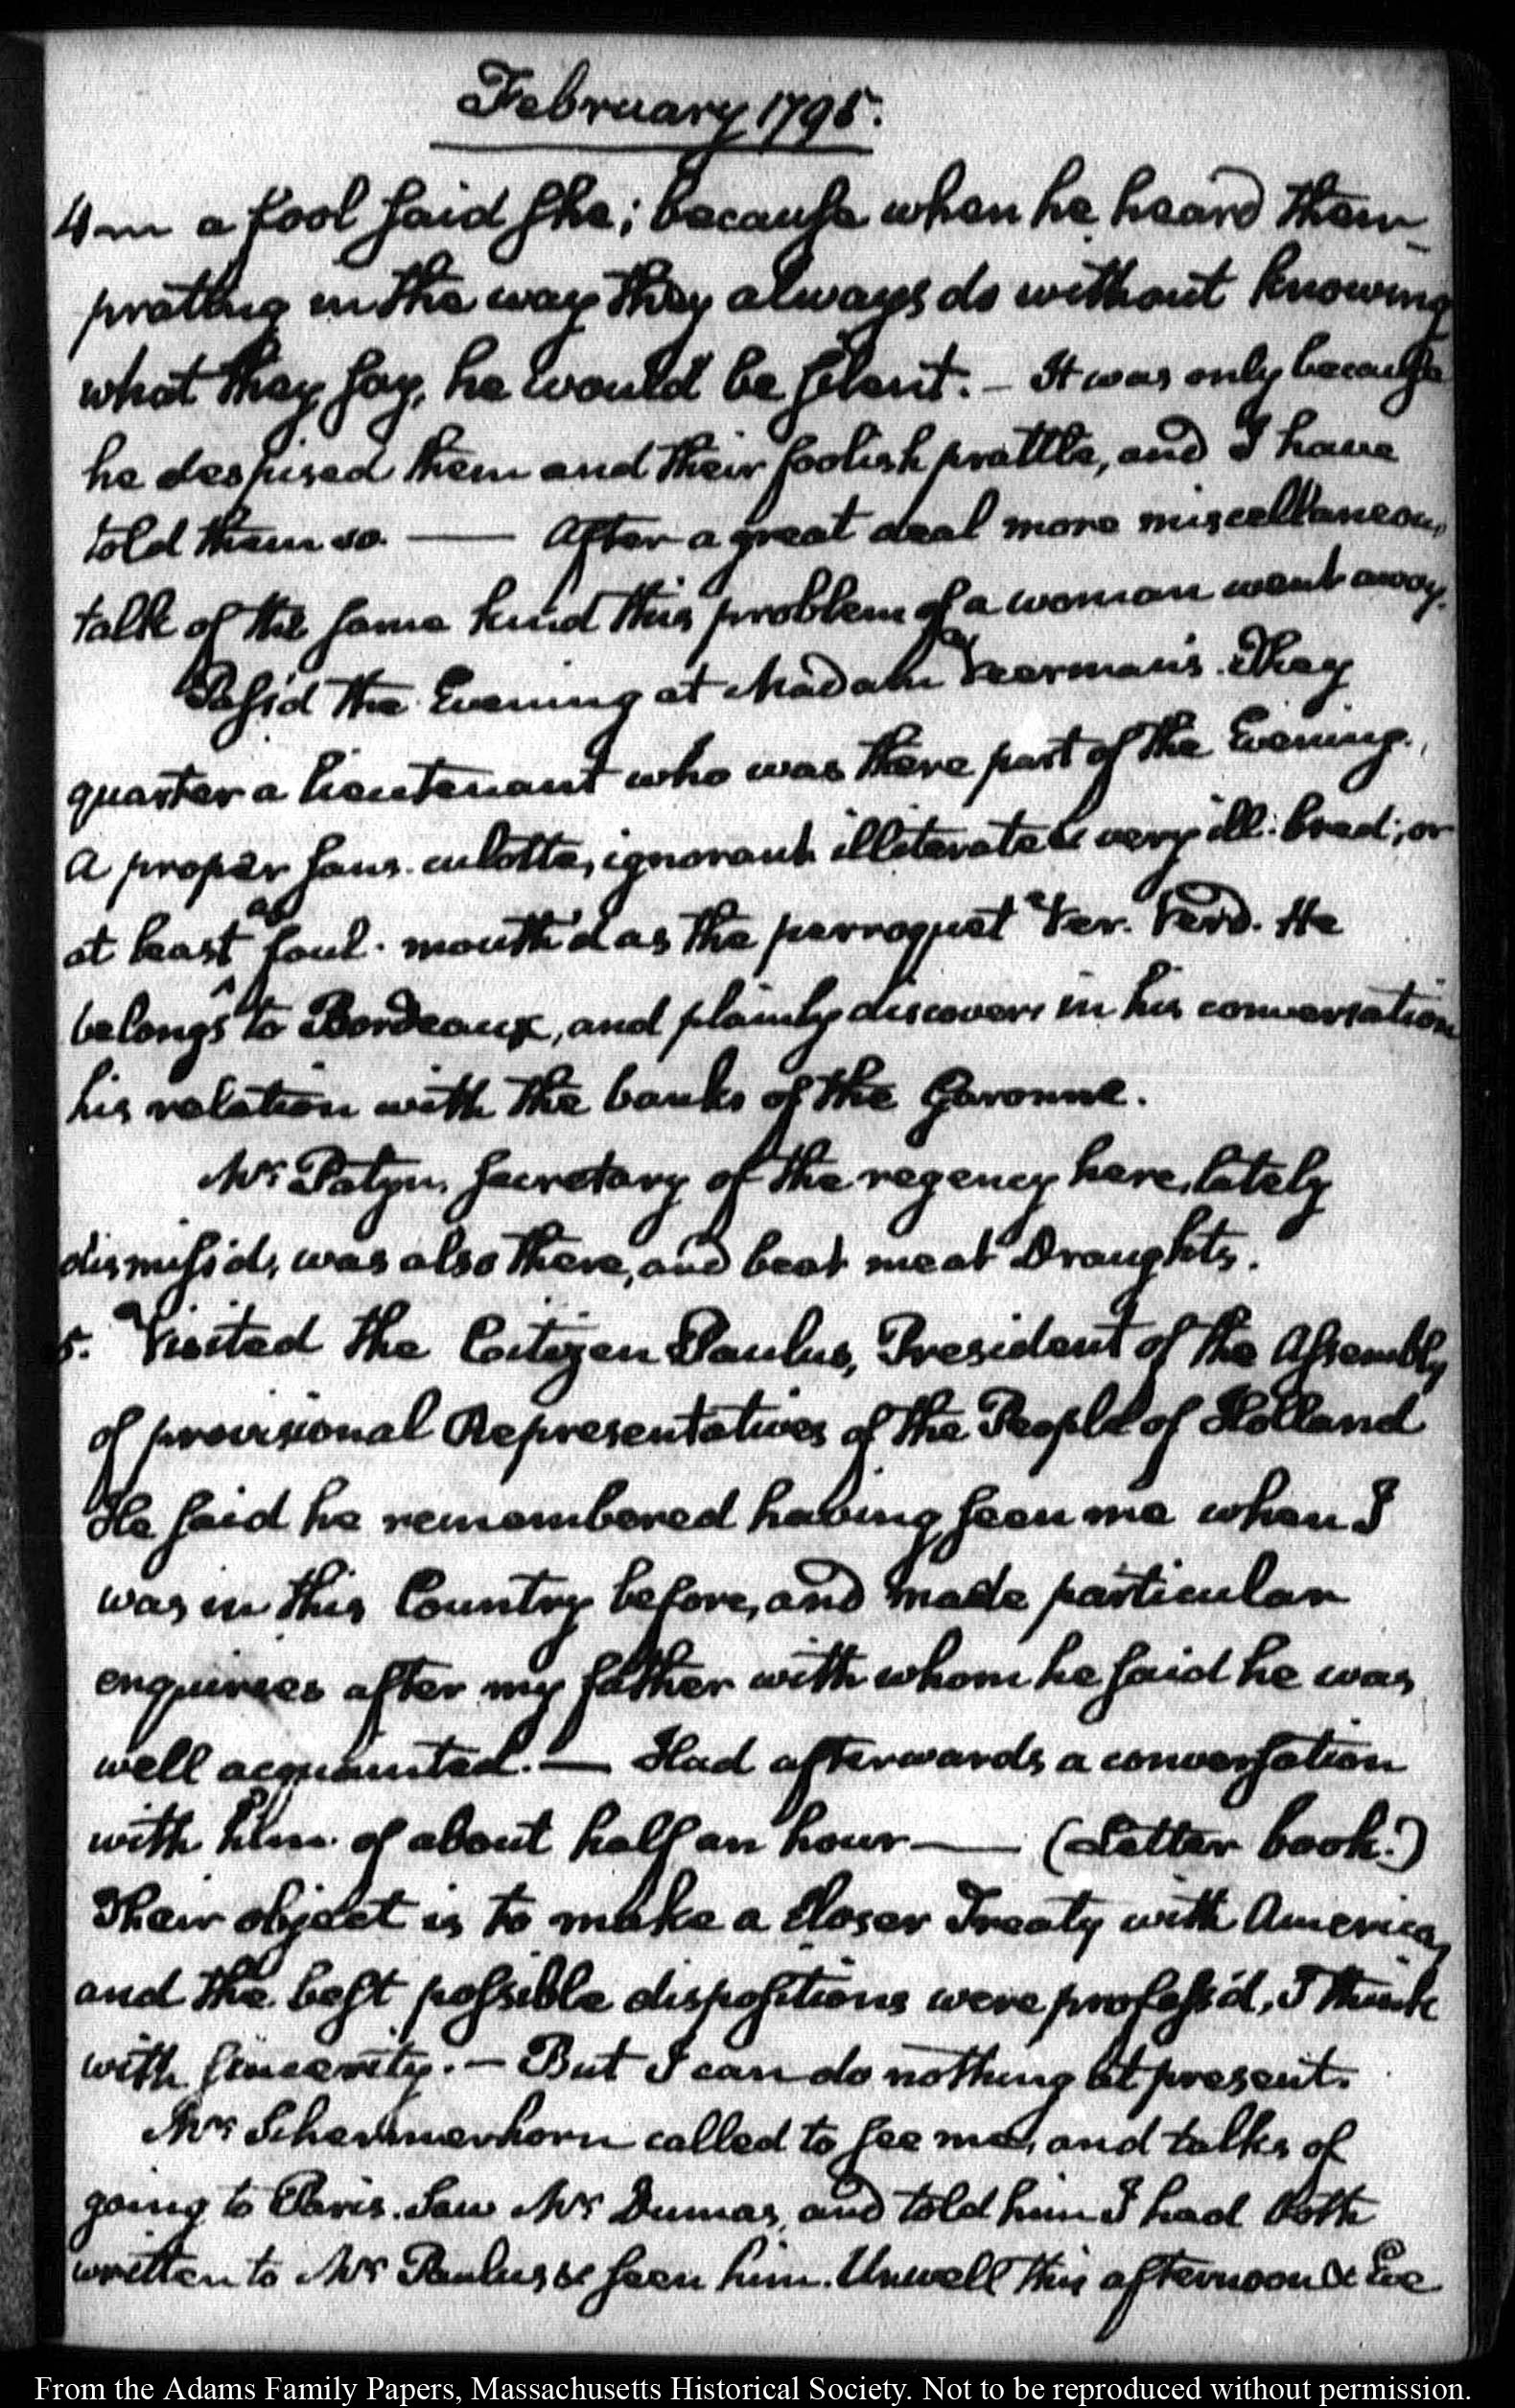 February 1795.
4 m a fool said she; because when he heard them
prating in the way they always do without knowing
what they say, he would be silent. — It was only because
he despised them and their foolish prattle, and I have
told them so — After a great deal more miscellaneous
talk of the same kind this problem of a woman went away.
Pass'd the Evening at Madam Veerman's. They
quarter a lieutenant who was there part of the Evening.
A proper sans-culotte, ignorant illiterate & very ill-bred; or
at least as foul-mouth'd as the perroquet Ver-Verd. He
belongs to Bordeaux, and plainly discovers in his conversation
his relation with the banks of the Garonne.
Mr Patyn, Secretary of the regency here, lately
dismiss'd, was also there, and beat me at Draughts.
5. Visited the Citizen Paulus, President of the Assembly
of provisional Representatives of the People of Holland
He said he remembered having seen me when I
was in this Country before, and made particular
enquiries after my father with whom he said he was
well acquainted. — Had afterwards a conversation
with him of about half an hour — (Letter book.)
Their object is to make a closer Treaty with America,
and the best possible dispositions were profess'd, I think
with sincerity. — But I can do nothing at present.
Mr Schermerhorn called to see me, and talks of
going to Paris. Saw Mr Dumas, and told him I had both
written to Mr Paulus & seen him. Unwell this afternoon & Eve
From the Adams Family Papers, Massachusetts Historical Society. Not to be reproduced without permission.